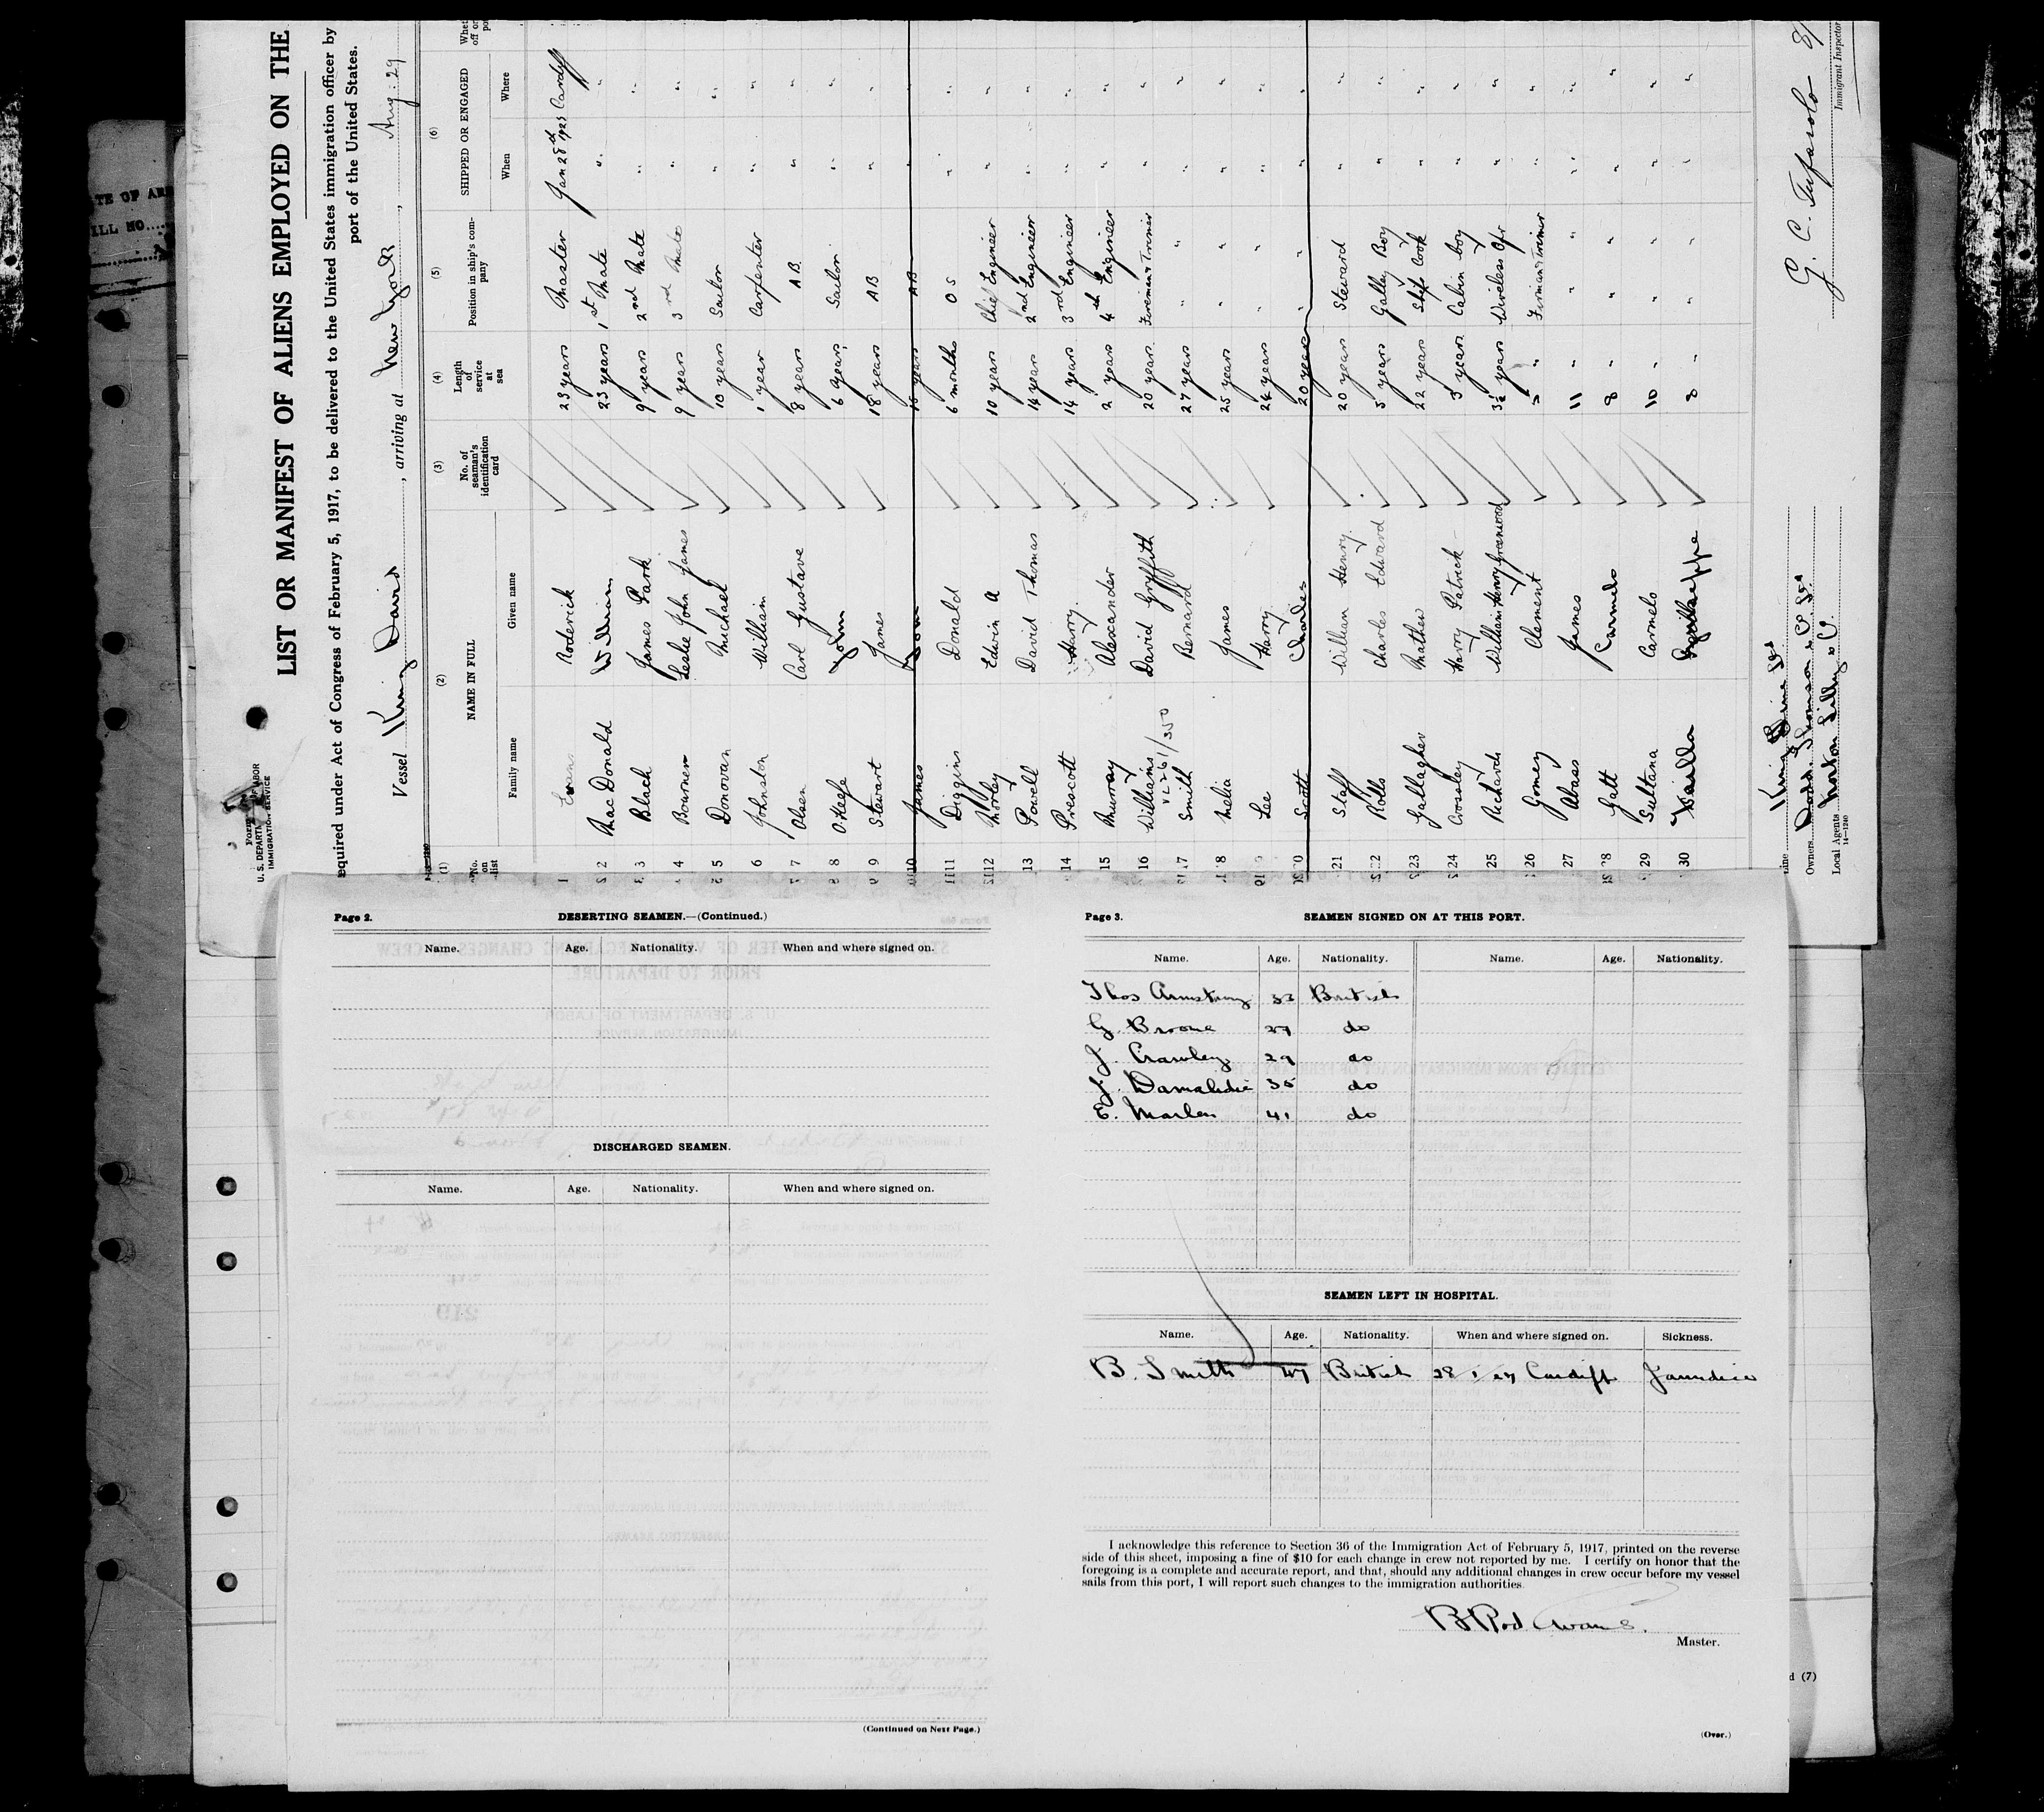 LIST OR MANIFEST OF ALIENS EMPLOYED ON THE
equired under Act of Congress of February 5, 1917, to be delivered to the United States immigration officer by
port of the United States.
U. S. DEPARTMENT OF LABOR
IMMIGRATION SERVICE
Vessel King David, arriving at New York, Aug: 29
(1) (2) (3) (4) (5) (6)
No. on list NAME IN FULL No. of seaman's identification card Length of service at sea Position in ship's company SHIPPED OR ENGAGED
Family name Given name When Where
1 Evans Roderick 23 years Master Jan 28th 1925 Cardiff
2 Mac Donald William 23 years 1st Mate " "
3 Black James Park 9 years 2nd Mate " "
4 Bournem Leslie John James 9 years 3rd Mate " "
5 Donovan Michael 10 years Sailor " "
6 Johnston William 1 year Carpenter " "
7 Olsen Carl Gustave 8 years A B. " "
8 O.Keefe John 6 years Sailor " "
9 Stewart James 18 years A B " "
10 James 16 years A B " "
11 Diggins Donald 6 months O S " "
12 Morley Edwin A 10 years Chief Engineer " "
13 Powell David Thomas 14 years 2nd Engineer " "
14 Prescott Harry 14 years 3rd Engineer " "
15 Murray Alexander 2 years 4th Engineer " "
16 Williams David Gryffith 20 years Fireman & Trimmer " "
17 Smith Bernard 27 years " " "
18 Melia James 25 years " " "
19 Lee Harry 24 years " " "
20 Scott Charles 20 years " " "
21 Staff William Henry 20 years Steward " "
22 Rolls Charles Edward 5 years Galley Boy " "
23 Gallagher Mathew 22 years Ship Cook " "
24 Crossley Harry Patrick 3 years Cabin boy " "
25 Richards William Henry Greenwood 3½ years Wireless Opr " "
26 Gomey Clement " Fireman & Trimmer " "
27 Abass James 11 " " " "
28 Gatt Carmelo 8 " " " "
29 Sultana Carmelo 10 " " " "
30 8 " " " "
Line King Line Ltd
Owners Dodd Thomson & Co Ltd.
Local Agents Norton Lilly & Co.
14—1240
G. C. Tufarolo
Immigrant Inspector
Page 2. DESERTING SEAMEN.—(Continued.)
Name. Age. Nationality. When and where signed on.
DISCHARGED SEAMEN.
Name. Age. Nationality. When and where signed on.
(Continued on Next Page.)
Page 3. SEAMEN SIGNED ON AT THIS PORT.
Name. Age. Nationality. Name. Age. Nationality.
Thos Armstrong 33 British
G. Broome 27 do
J. Crawley 29 do
J. Damaledie 35 do
E. Marlen 41 do
SEAMEN LEFT IN HOSPITAL.
Name. Age. Nationality. When and where signed on. Sickness.
B. Smith 47 British 28/1/25 Cardiff Jaundice
I acknowledge this reference to Section 36 of the Immigration Act of February 5, 1917, printed on the reverse
side of this sheet, imposing a fine of $10 for each change in crew not reported by me. I certify on honor that the
foregoing is a complete and accurate report, and that, should any additional changes in crew occur before my vessel
sails from this port, I will report such changes to the immigration authorities.
B Rod Evans.
Master.
(Over.)
d (7)